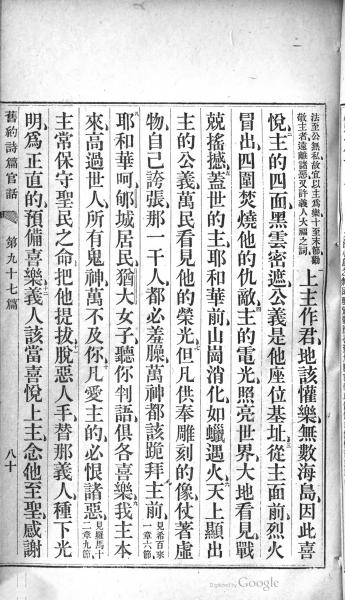 法至公無私故宜以主爲樂十至末節勸
敬主者遠離諸惡又許義人大福之詞
上主作君地該懽樂無數海島因此喜
悅主的四面黑雲密遮公義是他座位基址從主面前烈火
冒出四圍焚燒他的仇敵主的電光照亮世界大地看見戰
兢搖撼蓋世的主耶和華前山崗消化如蠟遇火天上顯出
主的公義萬民看見他的榮光但凡供奉雕刻的像仗著虛
物自己誇張那一干人都必羞臊萬神都該跪拜主前見希百來一章六節
耶和華呵郇城居民猶大女子聽你判語俱各喜樂我主本
來高過世人所有鬼神萬不及你凡愛主的必恨諸惡見羅馬十二章九節
主常保守聖民之命把他提拔脫惡人手替那義人種下光
明爲正直的預備喜樂義人該當喜悅上主念他至聖感謝
舊約詩篇官話 第九十七篇 八十
Digitized by Google